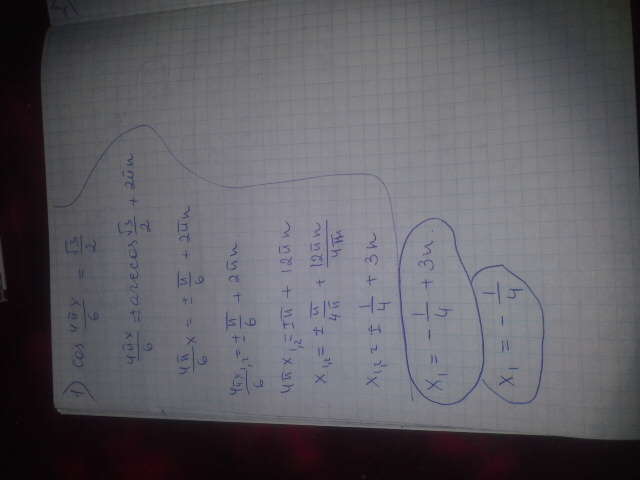 1) cos 4πx/6 = √3/2
4πx/6 = ±arccos √3/2 + 2πn
4π/6 x = ± π/6 + 2πn
4πx₁,₂/6 = ± π/6 + 2πn
4πx₁,₂ = ±π + 12πn
x₁,₂ = ± π/4π + 12πn/4π
x₁,₂ = ± 1/4 + 3n
x₁ = - 1/4 + 3n
x₁ = - 1/4